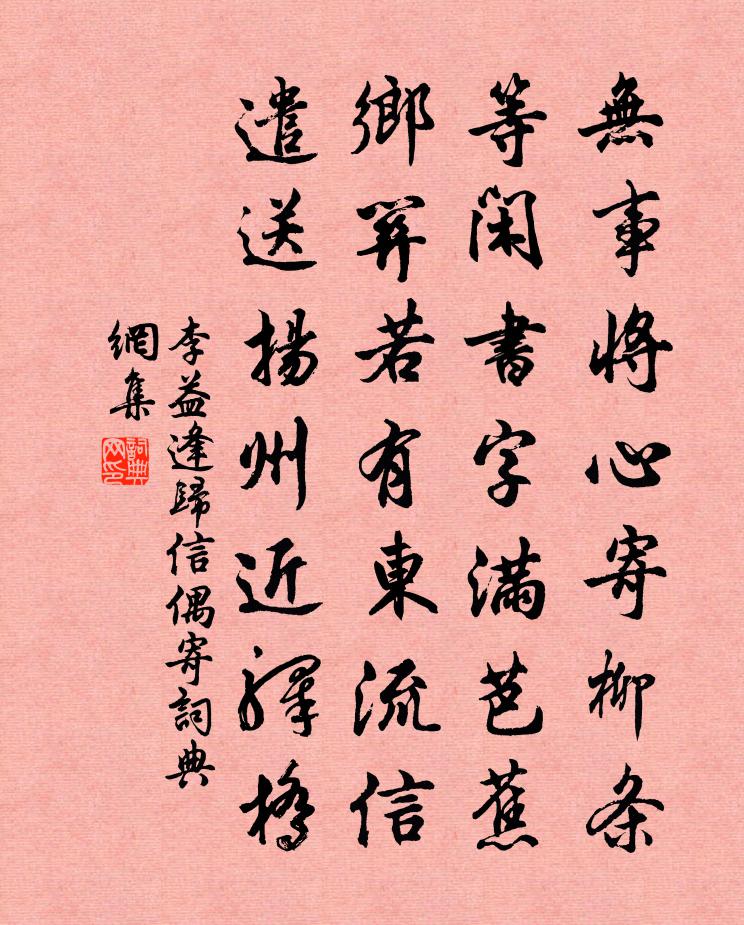 無事將心寄柳条
等閑書字滿芭蕉
鄉關若有東流信
遣送揚州近驛橋
李益逢歸信偶寄詞典
網集
詞典
网印